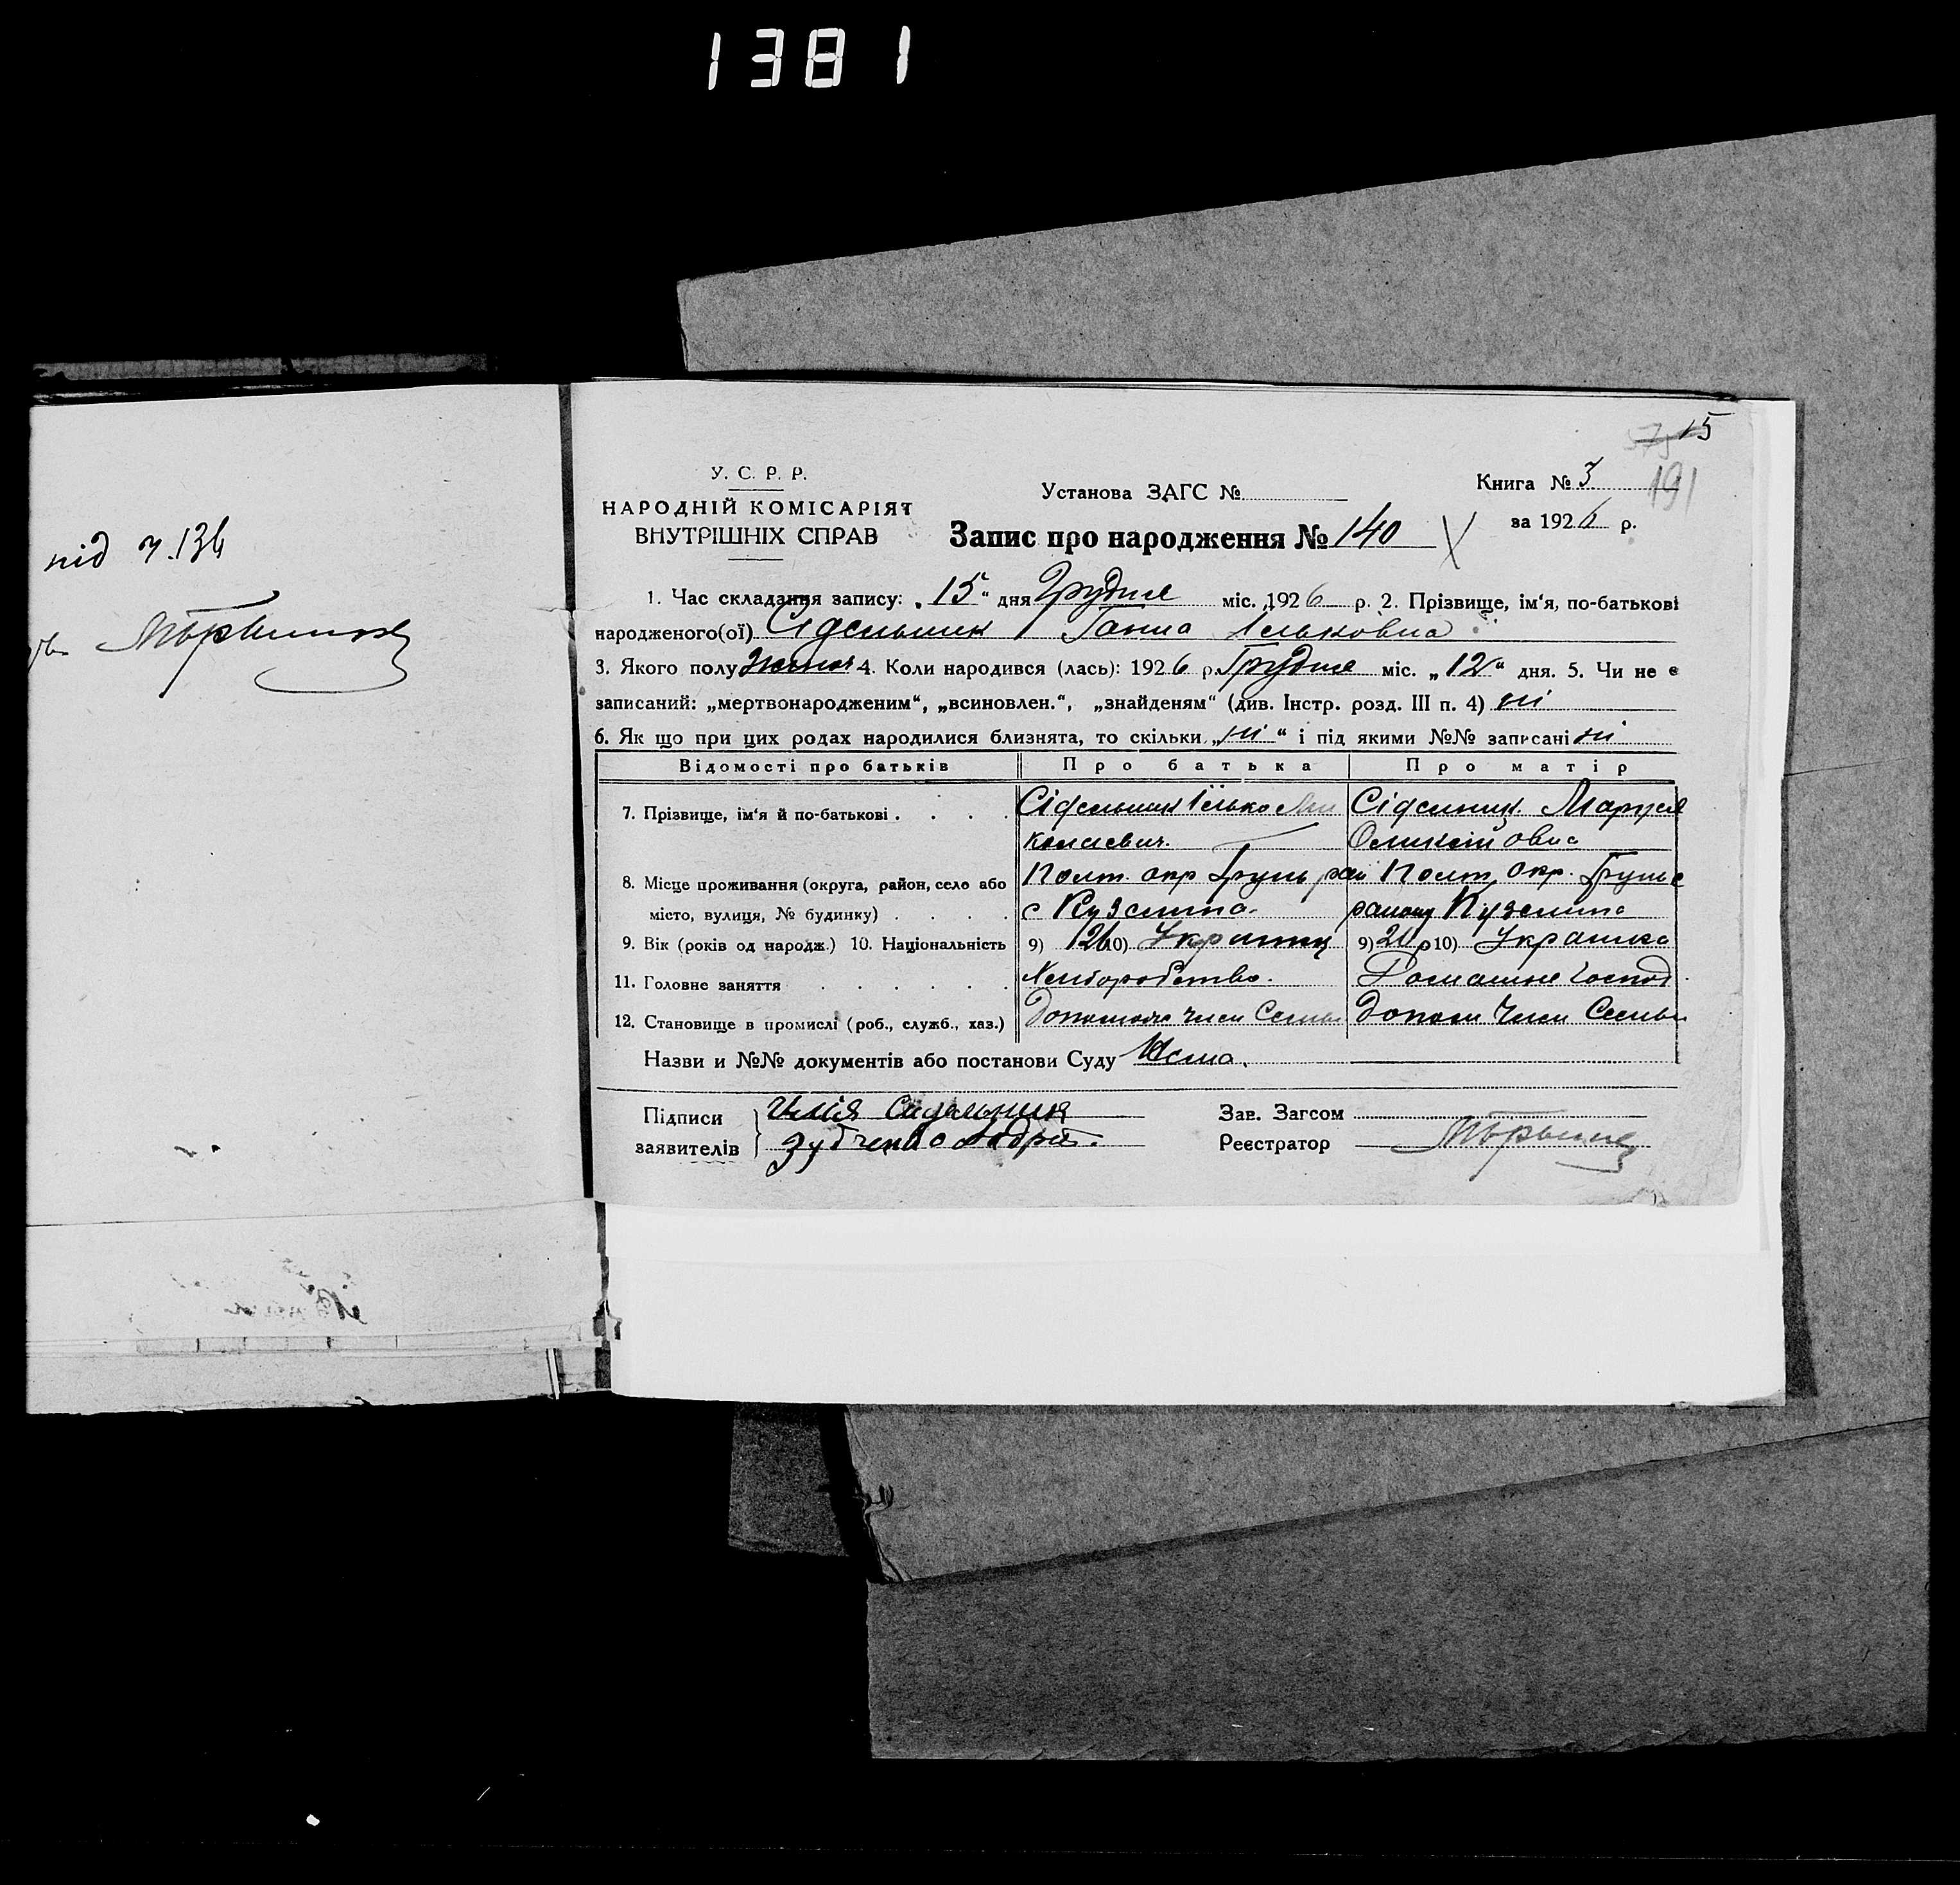 1381
15
191
У. С. Р. Р.
НАРОДНІЙ КОМІСАРІЯТ
ВНУТРІШНІХ СПРАВ
Установа ЗАГС №
Книга № 3
за 1926 р.
Запис про народження № 140
під ч. 136
1. Час складання запису: „15“ дня Грудня міс. 1926 р. 2. Прізвище, ім'я, по-батькові
народженого(ої) Сідельник Ганна Ільковна
3. Якого полу жіноч 4. Коли народився (лась): 1926 р. Грудня міс. „12“ дня. 5. Чи не є
записаний: „мертвонародженим“, „всиновлен.“, „знайденям“ (див. Інстр. розд. III п. 4) ні
6. Як що при цих родах народилися близнята, то скільки „ні“ і під якими №№ записані ні
Відомості про батьків Про батька Про матір
7. Прізвище, ім'я й по-батькові . . . . Сідельник Ілько Ми Сідельник
колаевич.
8. Місце проживання (округа, район, село або Полт. окр Грунь рай Полт. окр. Грунь
місто, вулиця, № будинку) . . . . с Куземина. району Куземина
9. Вік (років од народж.) 10. Національність 9) 10) Українец 9) 10) Українка
11. Головне заняття . . . . . . Хліборобство. Домашне господ.
12. Становище в промислі (роб., служб., хаз.) Допомога член Семьи Допом Член Семьи
Назви и №№ документів або постанови Суду Нема.
Підписи
заявителів
Илія Сидельник
Зубченко Андрій.
Зав. Загсом
Реєстратор